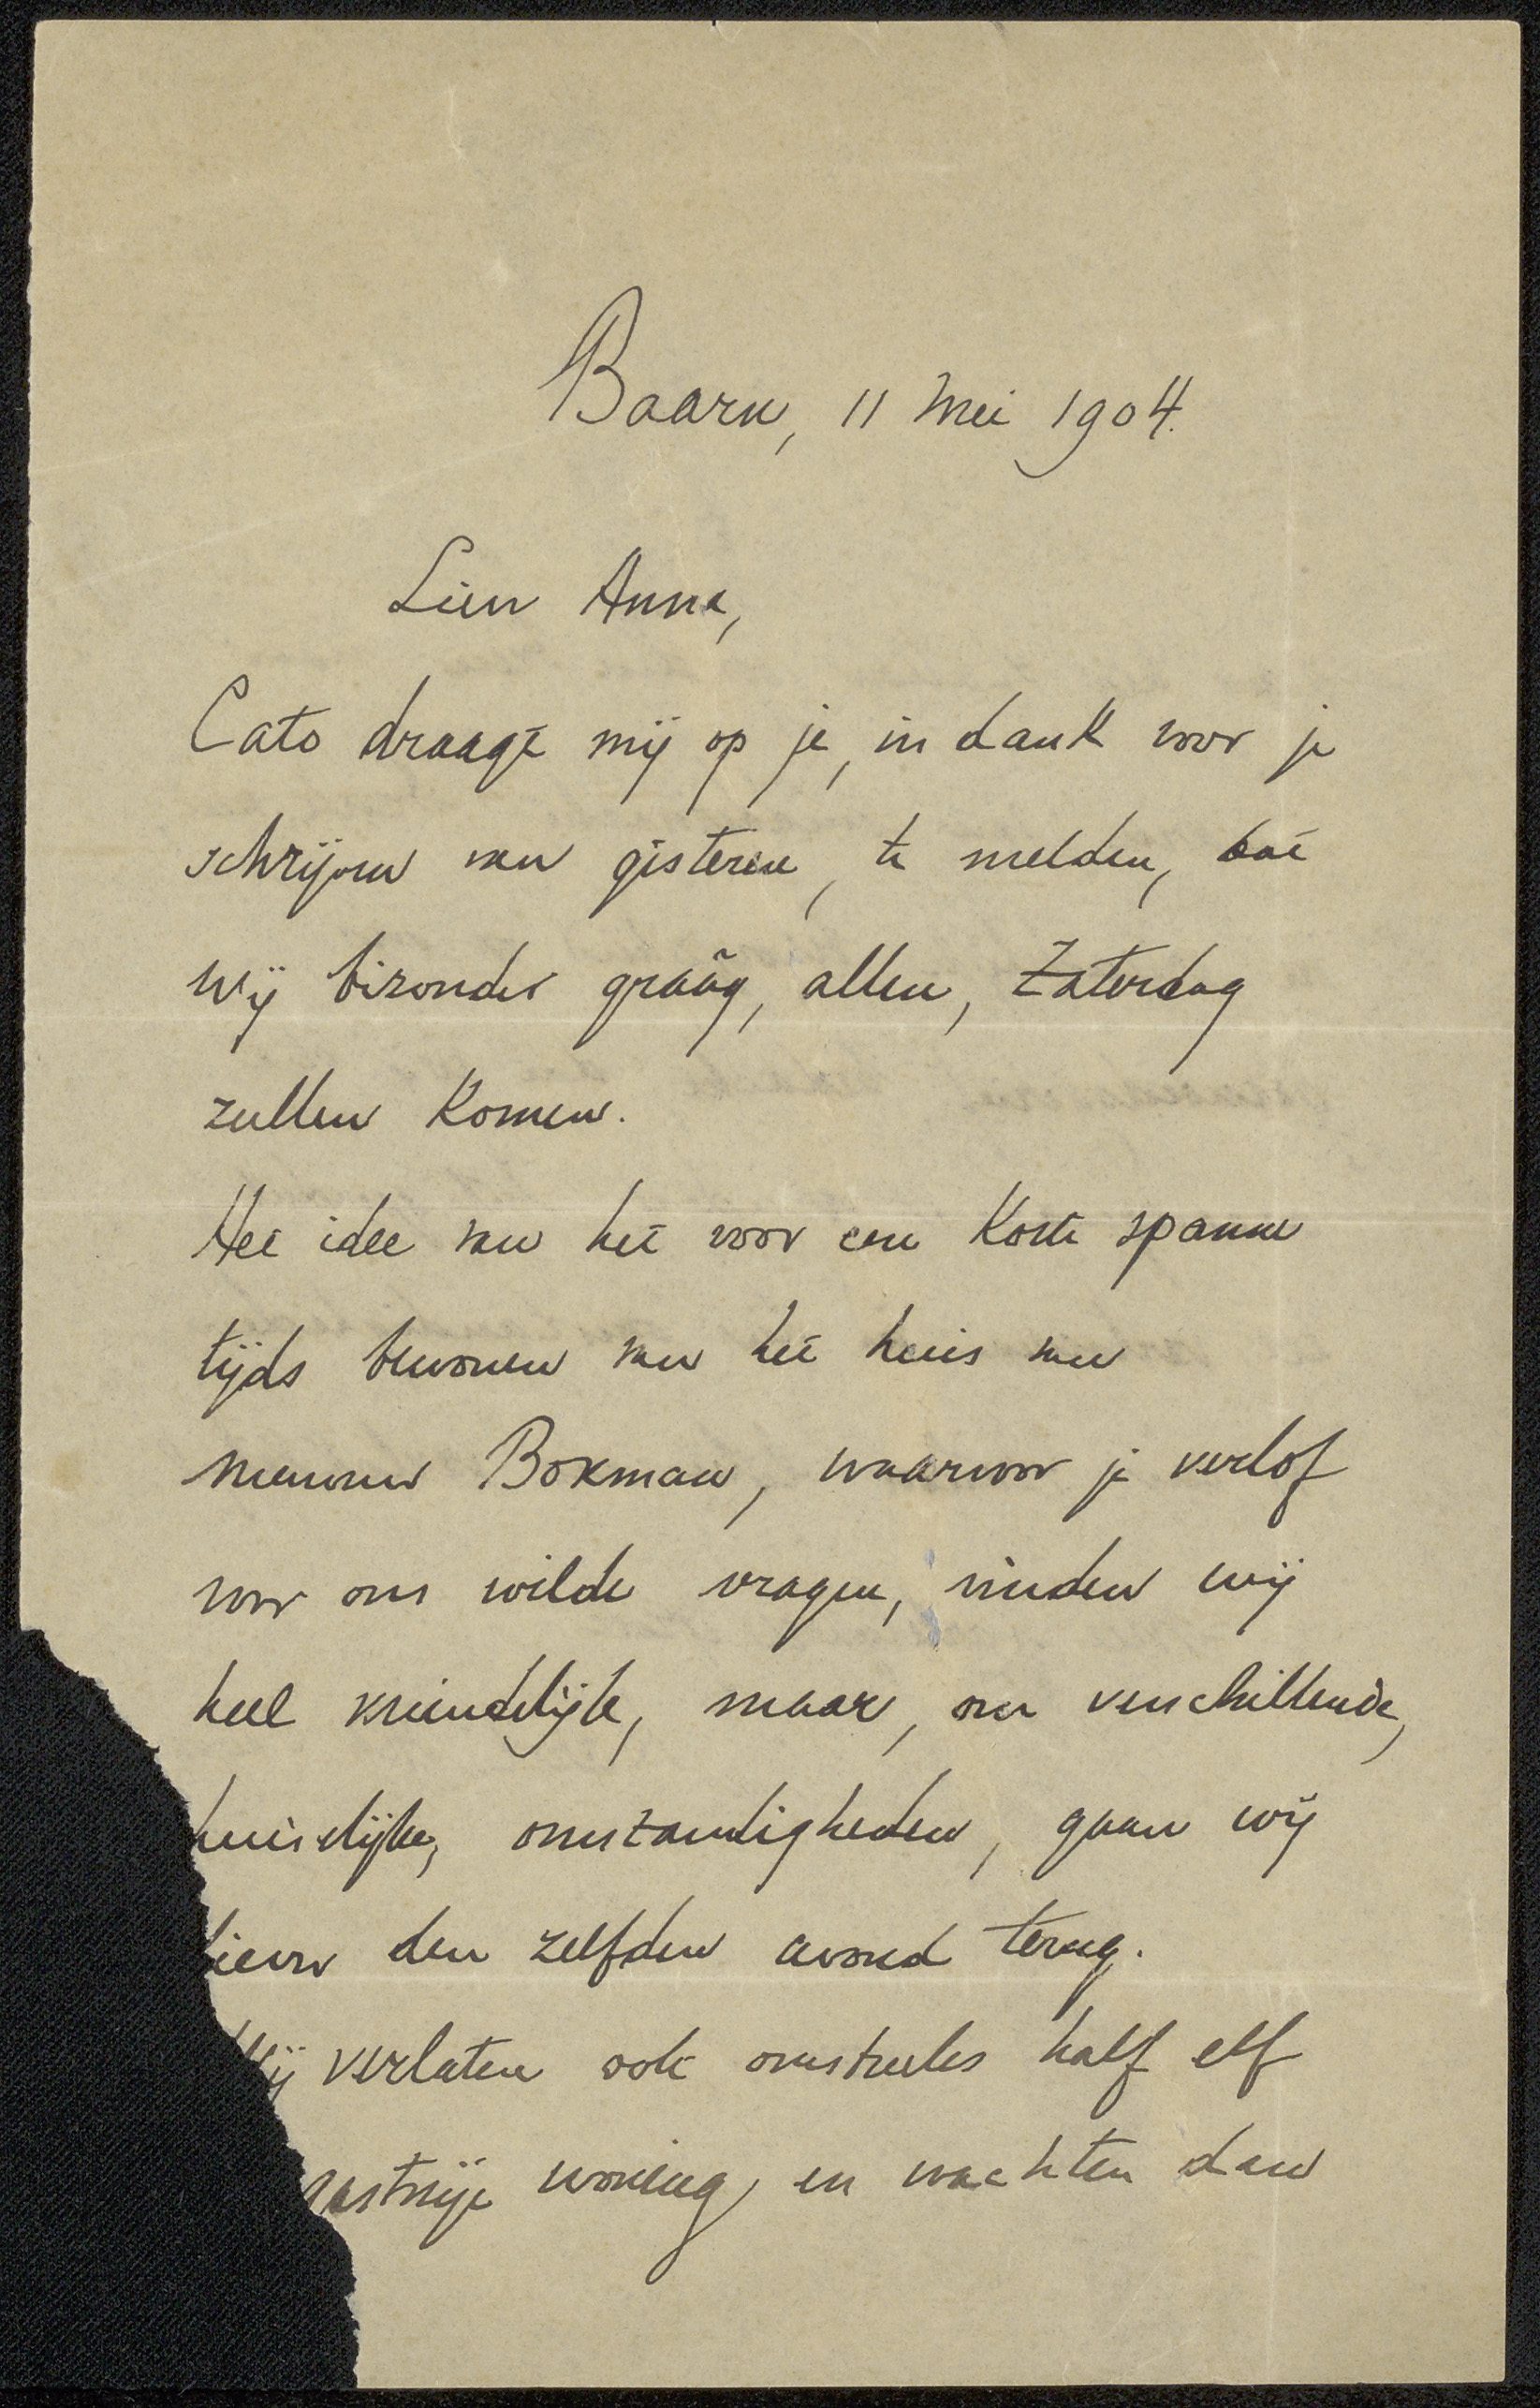 Baarn, 11 Mei 1904.
Lieve Anna,
Cato draagt mij op je, in dank voor je
schrijven van gisteren, te melden, dat
wij bizonder graag, allen, Zaterdag
zullen komen.
Het idee van het voor een korte spanne
tijds bewonen van het huis van
mevrouw Bokman, waarvoor je verlof
voor ons wilde vragen, vinden wij
heel vriendelijk, maar, om verschillende,
huiselijke, omstandigheden, gaan wij
liever den zelfden avond terug.
Wij verlaten ook omstreeks half elf
gastvrije woning, en wachten dan